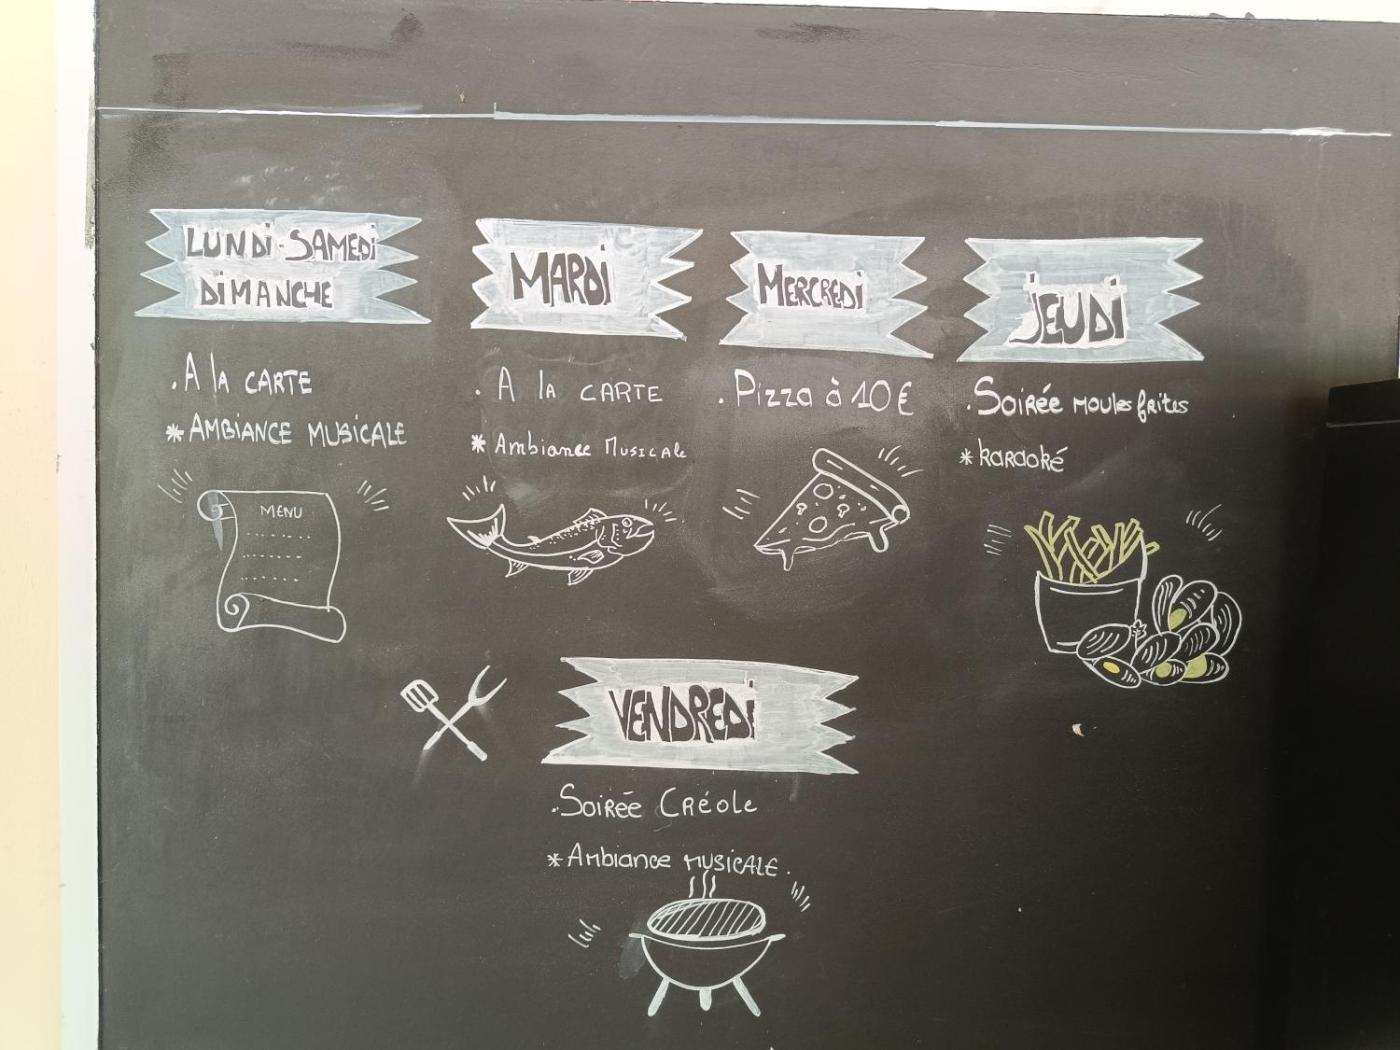 LUNDi-SAMEDi
DiMANCHE
. A la CARTE
* AMBIANCE MUSICALE
MENU
MARDi
. A la CARTE
* Ambiance Musicale
MERCREDi
. Pizza à 10 €
jEUDi
. Soirée moules frites
* karaoké
VENDREDi
. Soirée Créole
* Ambiance MUSICALE.